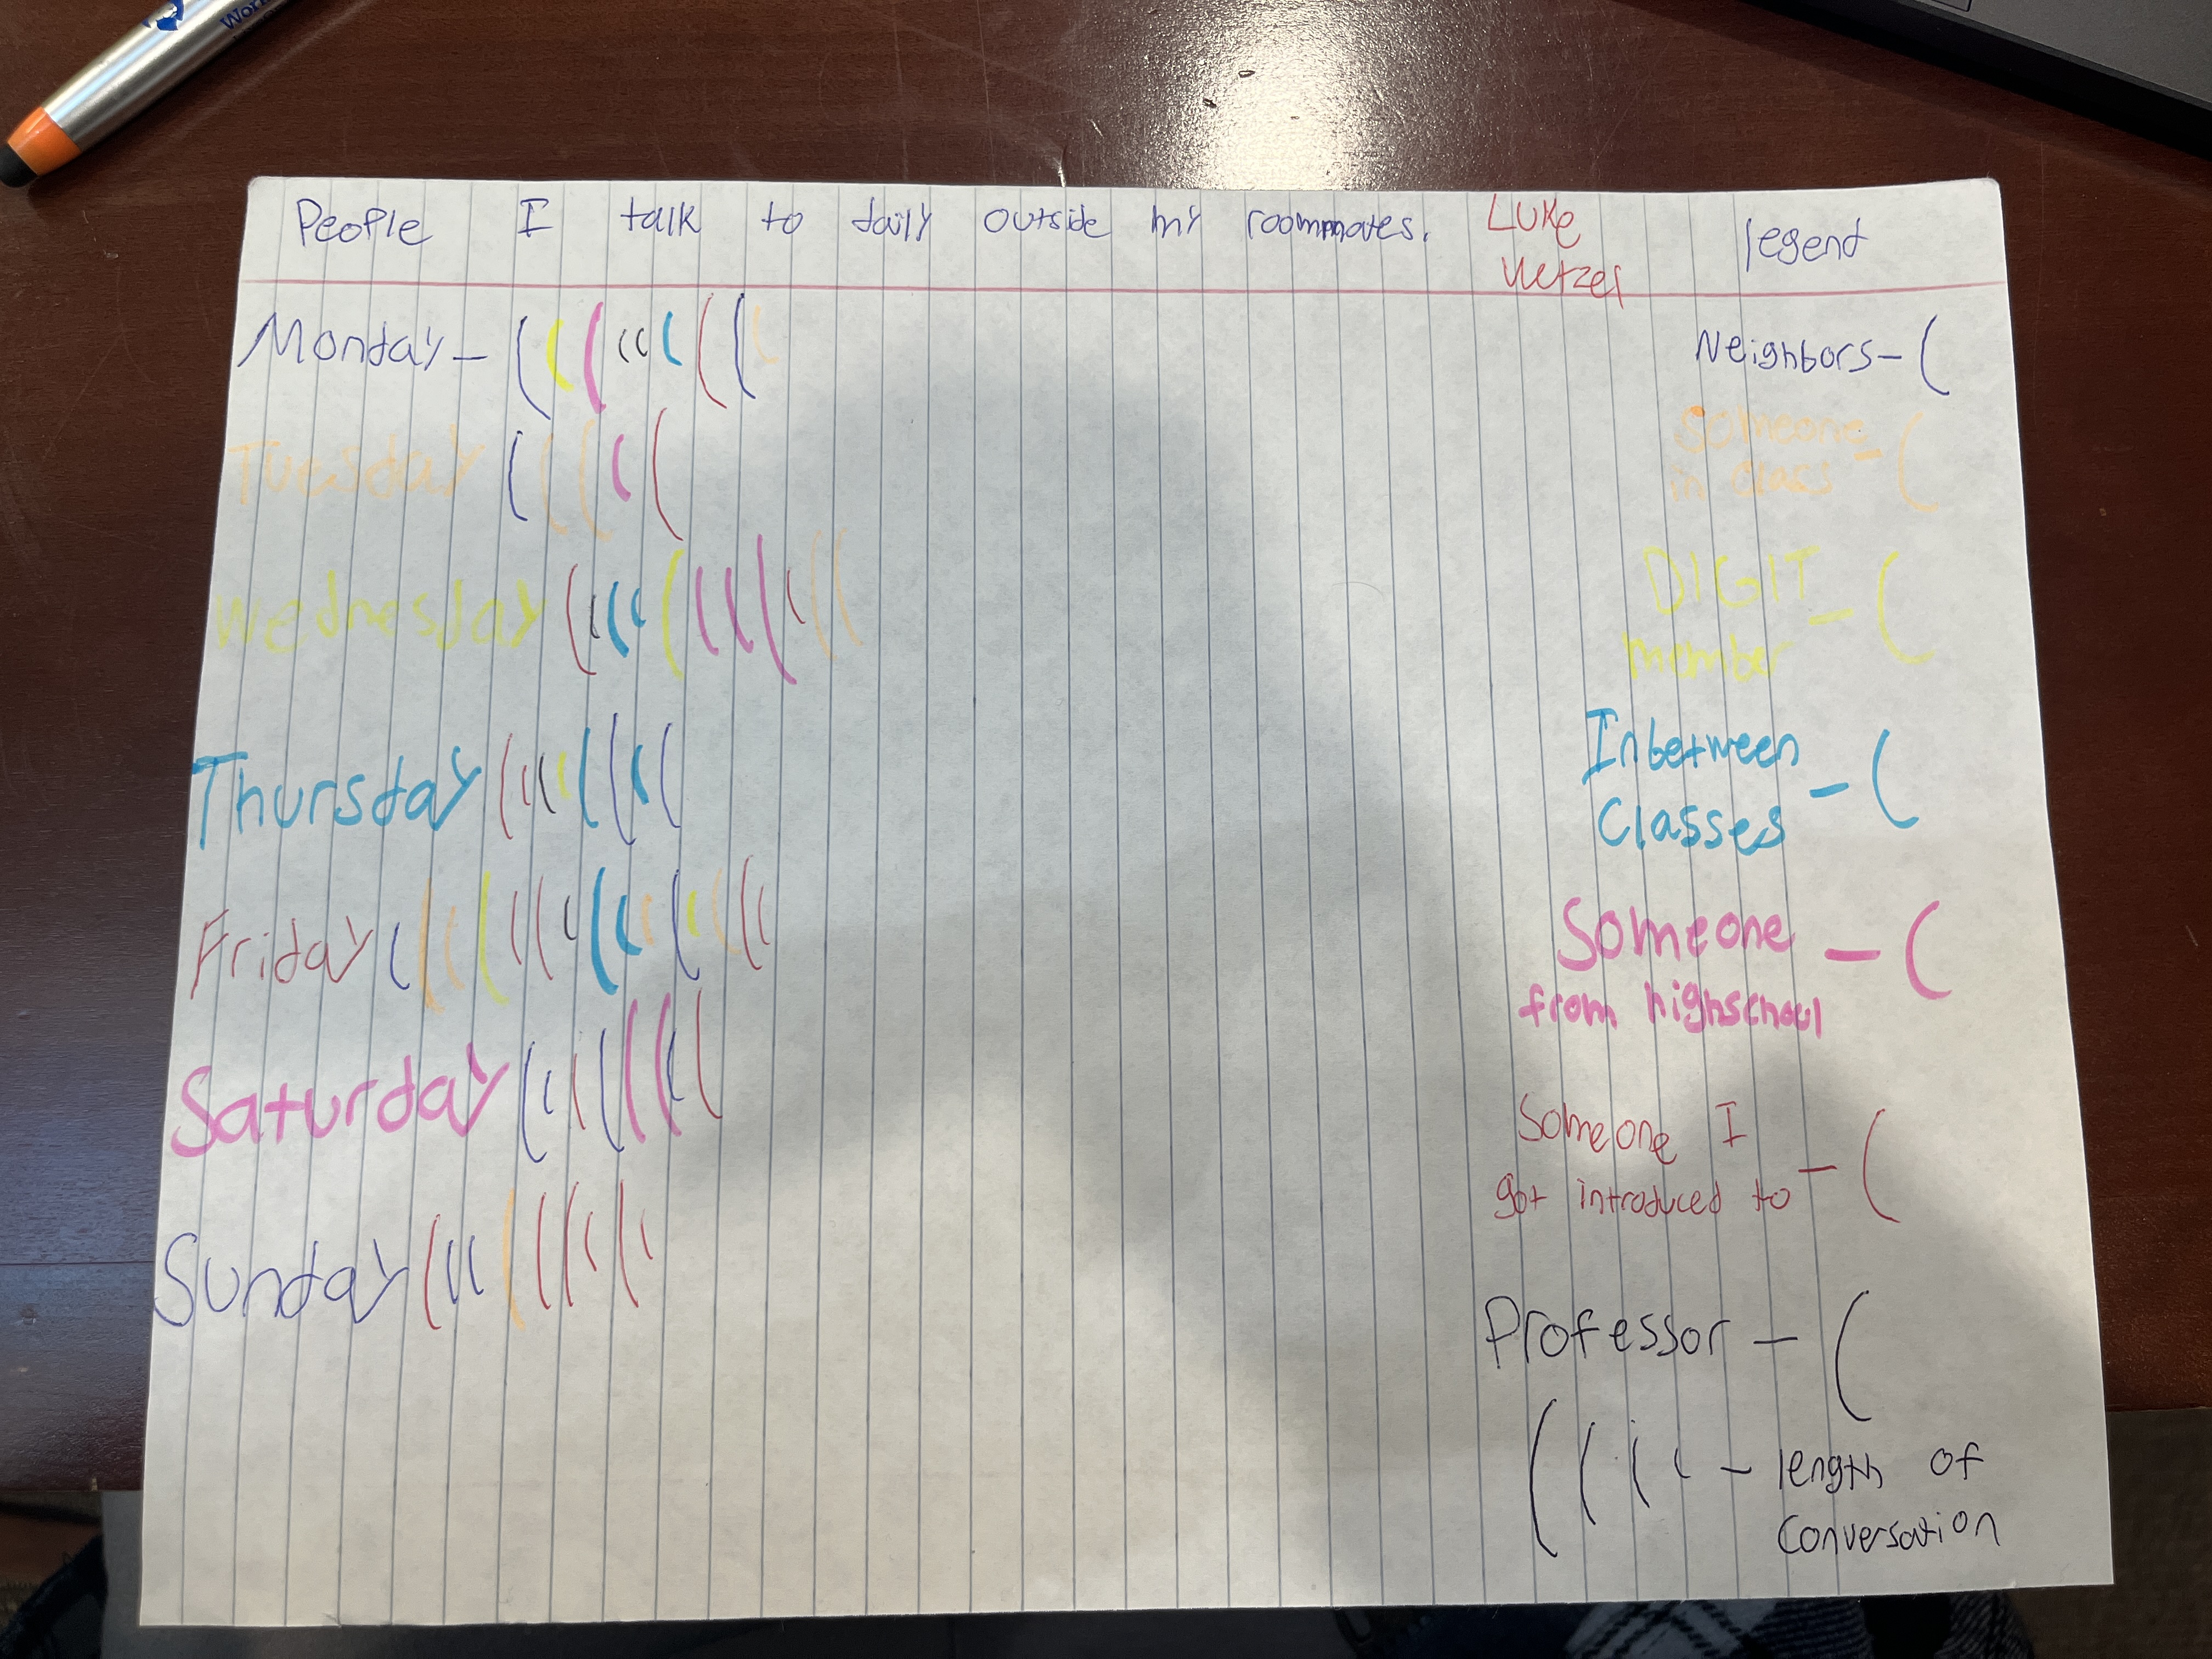 People I talk to daily outside my roommates.
Luke
legend
Monday - (
Tuesday
Wednesday
Thursday
Friday
Saturday
Sunday
Neighbors - (
Someone
in class - (
DIGIT
member - (
Inbetween
Classes - (
Someone
from highschool - (
Someone I
got introduced to - (
Professor - (
( ( ( ( - length of
Conversation